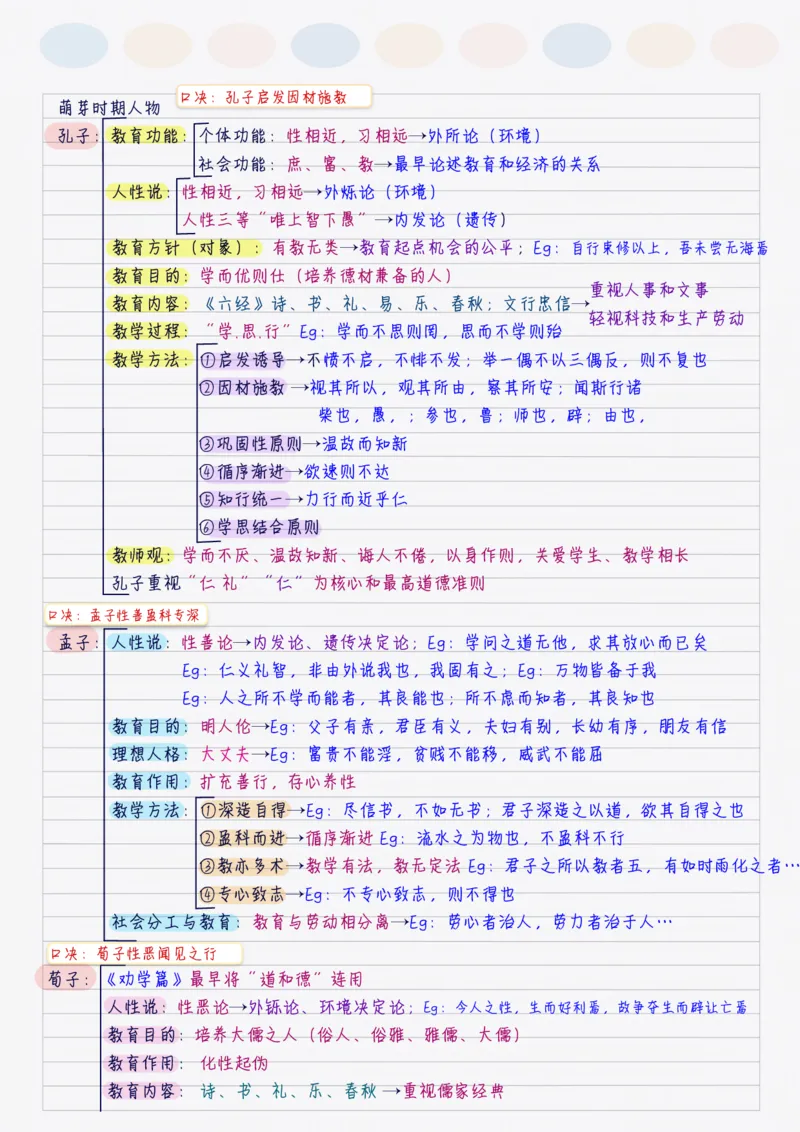 口决：孔子启发因材施教
萌芽时期人物
孔子：教育功能：个体功能：性相近，习相远→外所论（环境）
社会功能：庶、富、教→最早论述教育和经济的关系
人性说：性相近，习相远→外烁论（环境）
人性三等“唯上智下愚”→内发论（遗传）
教育方针（对象）：有教无类→教育起点机会的公平；Eg：自行束修以上，吾未尝无海焉
教育目的：学而优则仕（培养德材兼备的人）
教育内容：《六经》诗、书、礼、易、乐、春秋；文行忠信→重视人事和文事
轻视科技和生产劳动
教学过程：“学.思.行”Eg：学而不思则罔，思而不学则殆
教学方法：①启发诱导→不愤不启，不悱不发；举一偶不以三偶反，则不复也
②因材施教→视其所以，观其所由，察其所安；闻斯行诸
柴也，愚，；参也，鲁；师也，辟；由也，
③巩固性原则→温故而知新
④循序渐进→欲速则不达
⑤知行统一→力行而近乎仁
⑥学思结合原则
教师观：学而不厌、温故知新、诲人不倦，以身作则，关爱学生、教学相长
孔子重视“仁 礼”“仁”为核心和最高道德准则
口决：孟子性善盈科专深
孟子：人性说：性善论→内发论、遗传决定论；Eg：学问之道无他，求其放心而已矣
Eg：仁义礼智，非由外说我也，我固有之；Eg：万物皆备于我
Eg：人之所不学而能者，其良能也；所不虑而知者，其良知也
教育目的：明人伦→Eg：父子有亲，君臣有义，夫妇有别，长幼有序，朋友有信
理想人格：大丈夫→Eg：富贵不能淫，贫贱不能移，威武不能屈
教育作用：扩充善行，存心养性
教学方法：①深造自得→Eg：尽信书，不如无书；君子深造之以道，欲其自得之也
②盈科而进→循序渐进 Eg：流水之为物也，不盈科不行
③教亦多术→教学有法，教无定法 Eg：君子之所以教者五，有如时雨化之者…
④专心致志→Eg：不专心致志，则不得也
社会分工与教育：教育与劳动相分离→Eg：劳心者治人，劳力者治于人…
口决：荀子性恶闻见之行
荀子：《劝学篇》最早将“道和德”连用
人性说：性恶论→外铄论、环境决定论；Eg：今人之性，生而好利焉，故争夺生而辟让亡焉
教育目的：培养大儒之人（俗人、俗雅、雅儒、大儒）
教育作用：化性起伪
教育内容：诗、书、礼、乐、春秋→重视儒家经典